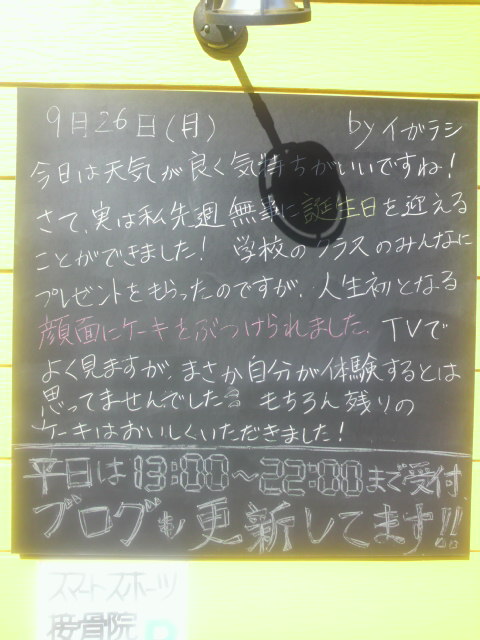 9月26日(月) byイガラシ
今日は天気が良く気持ちがいいですね!
さて、実は私先週無事に誕生日を迎える
ことができました! 学校のクラスのみんなに
プレゼントをもらったのですが、人生初となる
顔面にケーキをぶつけられました。TVで
よく見ますが、まさか自分が体験するとは
思ってませんでした。もちろん残りの
ケーキはおいしくいただきました!
平日は13:00~22:00まで受付
ブログも更新してます!!
スマートスポーツ
接骨院